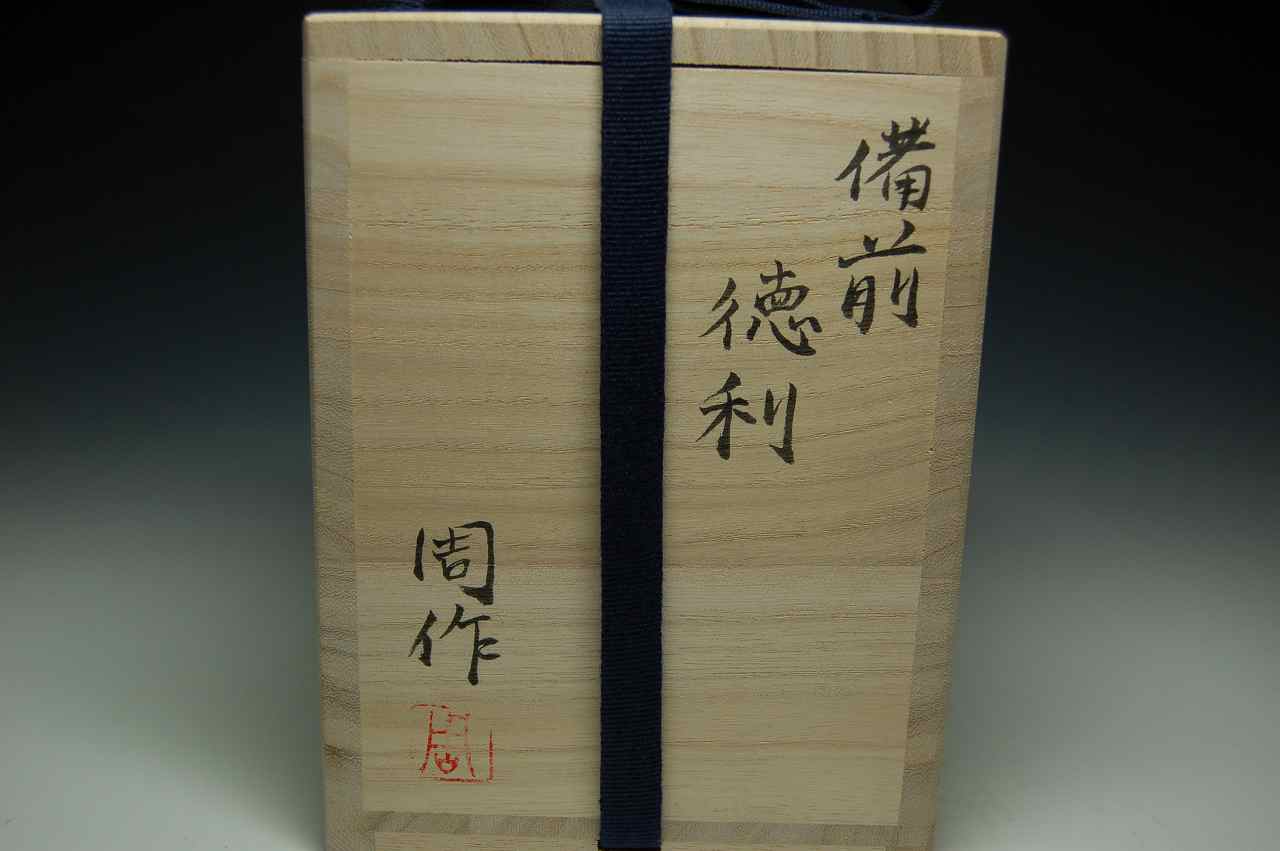 備前
徳利
周作
周